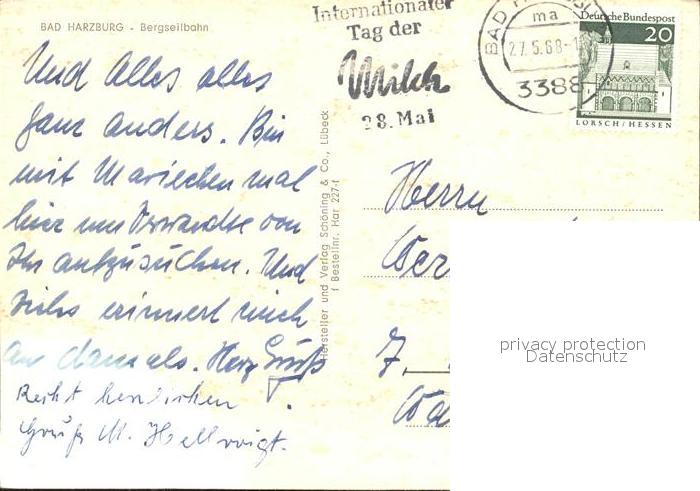 BAD HARZBURG - Bergseilbahn
Und Alles alles
ganz anders. Bin
mit Mariechen mal
hier um Verwandte von
Ihr aufzusuchen. Und
Vieles erinnert mich
an damals. Herz. Gruß
Recht herzlichen
Gruß M. Hellwigt.
Hersteller und Verlag Schöning & Co., Lübeck
Bestellnr. Har 227/
Internationaler
Tag der
Milch
28. Mai
BAD
ma
27.5.68-1
3388
Deutsche Bundespost
20
LORSCH/HESSEN
Herrn
Wer
7.
privacy protection
Datenschutz